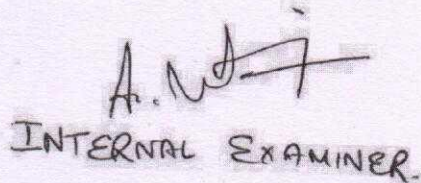 INTERNAL EXAMINER.